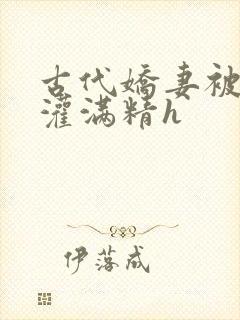 古代嬌妻被
灌滿精h
伊落成